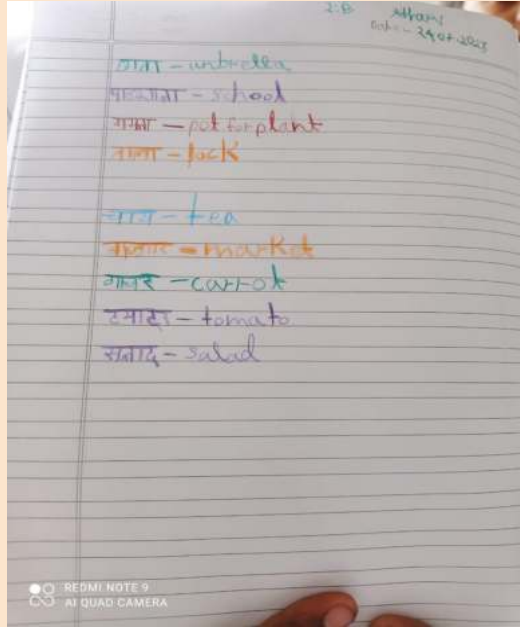 2-B
Date:- 24.07.2023
छाता - umbrella
पाठशाला - school
गमला - pot for plant
ताला - lock
चाय - tea
बाजार - market
गाजर - carrot
टमाटर - tomato
सलाद - salad
REDMI NOTE 9
AI QUAD CAMERA